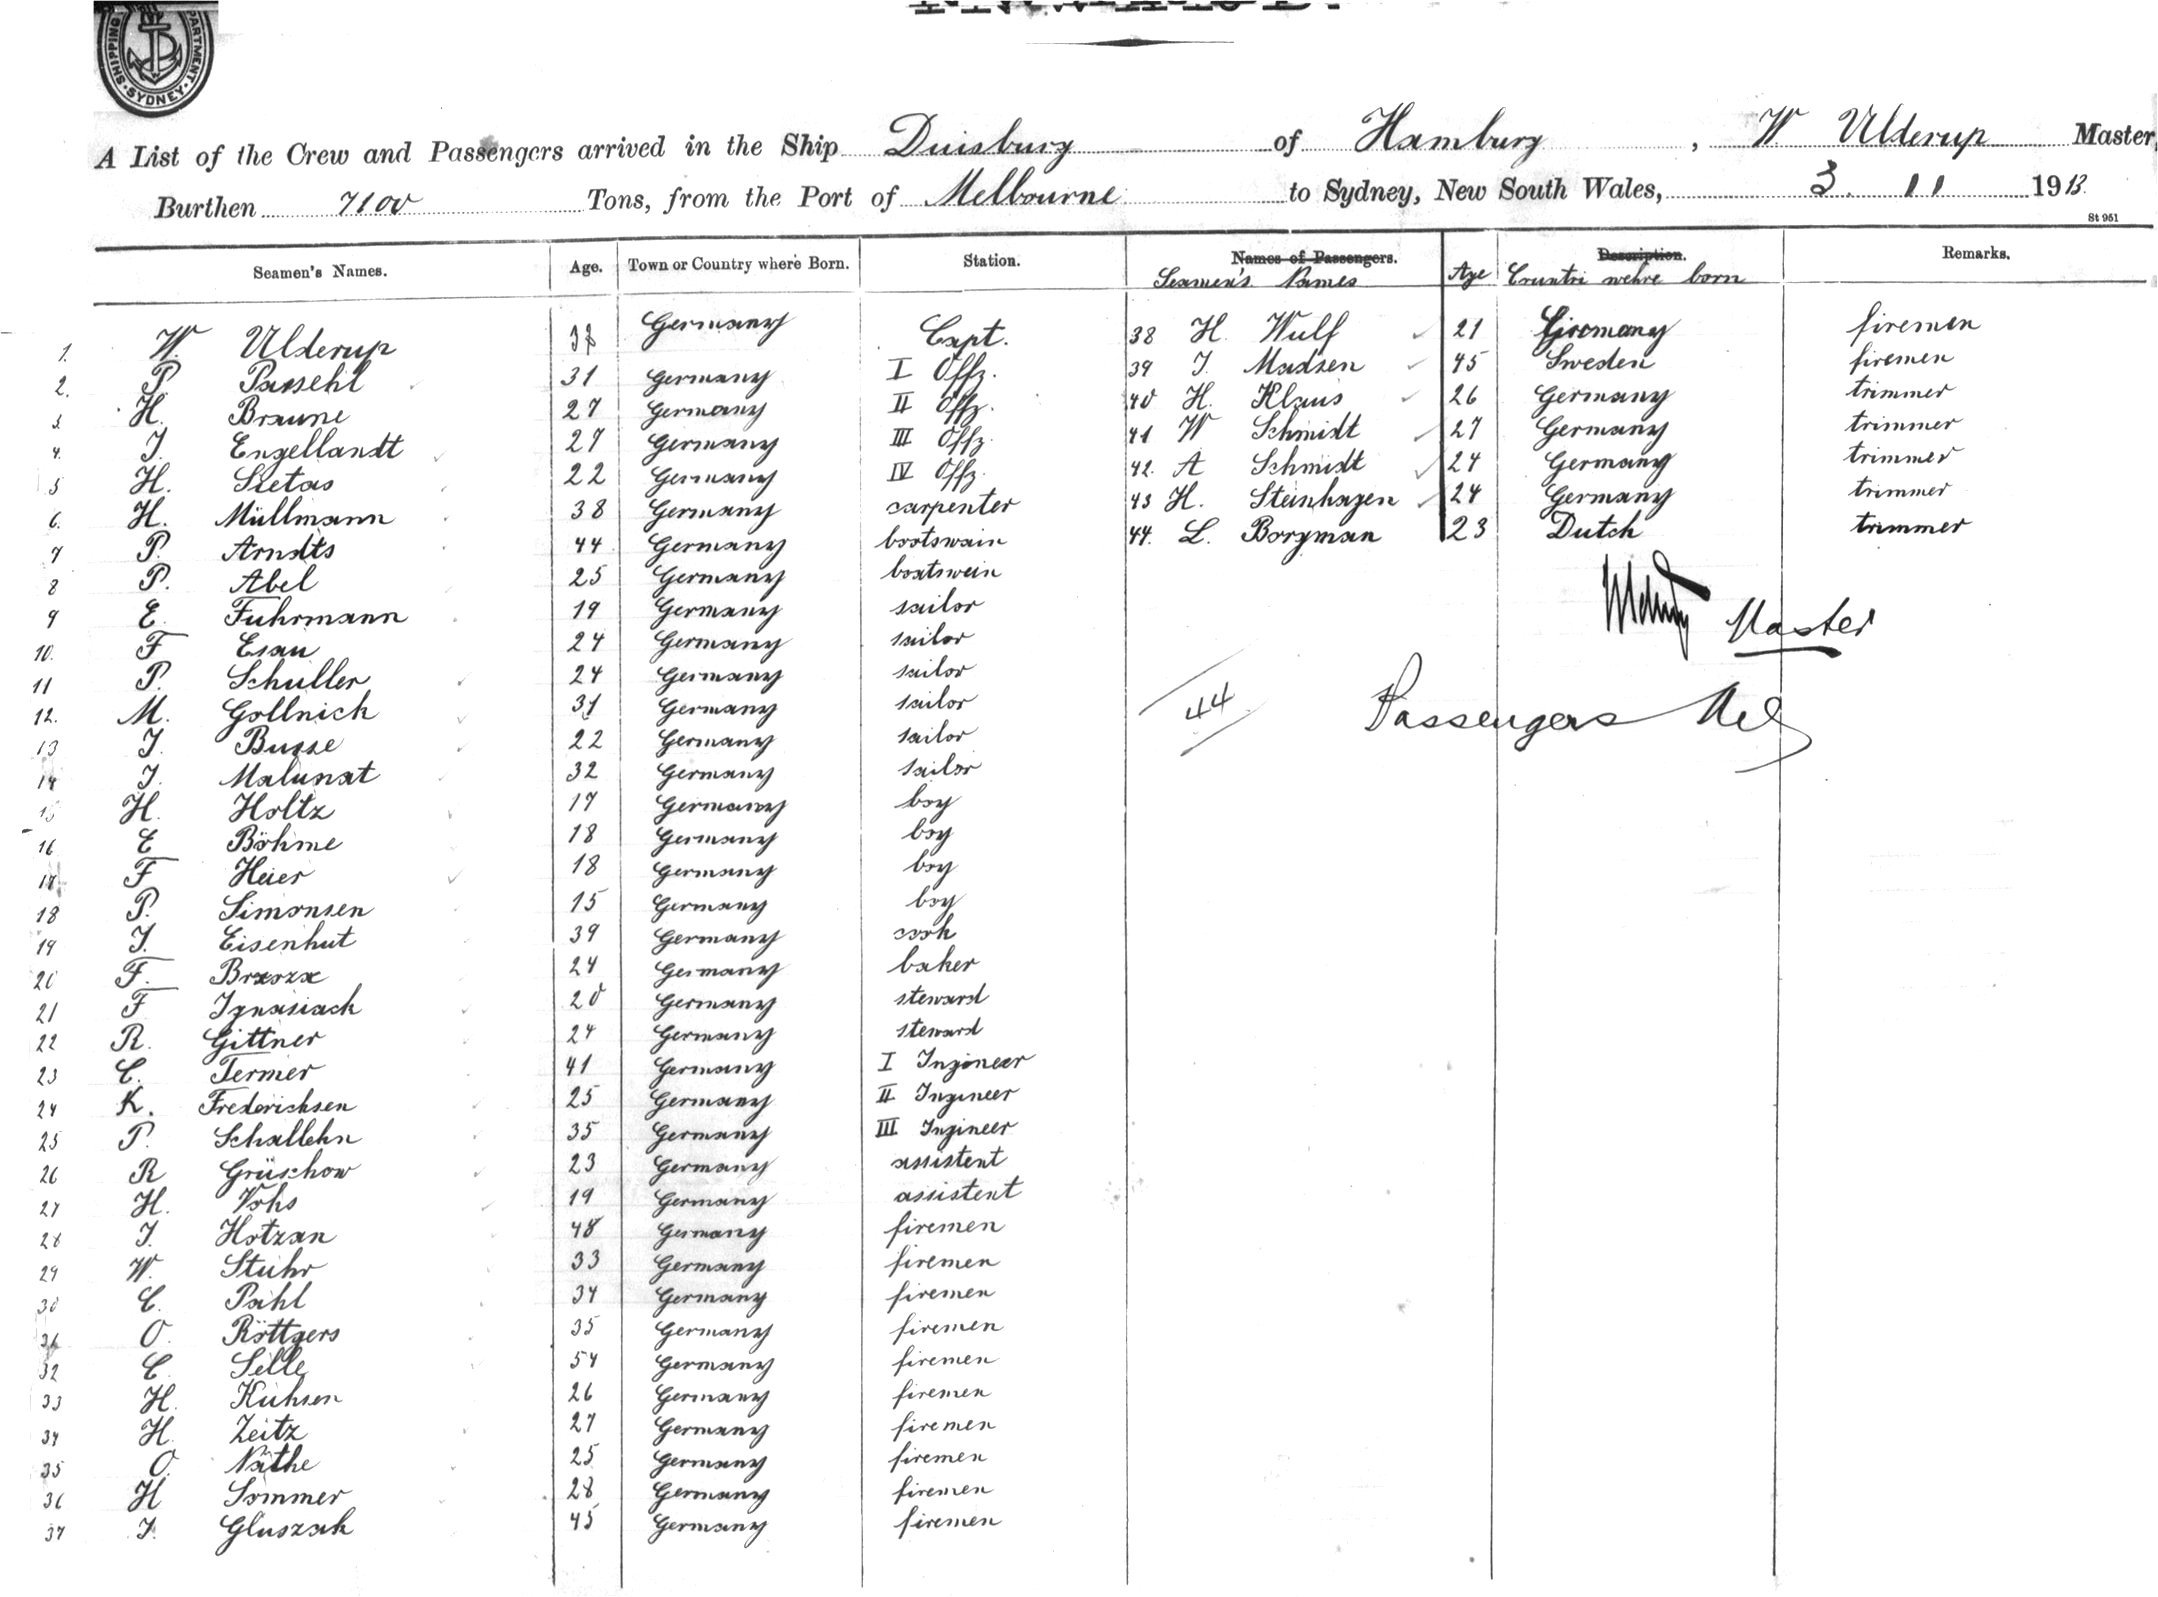 SHIPPING DEPARTMENT SYDNEY
A List of the Crew and Passengers arrived in the Ship Duisburg of Hamburg, W Ulderup Master,
Burthen 7100 Tons, from the Port of Melbourne to Sydney, New South Wales, 3. 11 1913
St 951
Seamen's Names. Age. Town or Country where Born. Station. Names of Passengers. Description. Remarks.
Seamen's Names Age Countri wehre born
1. W. Ulderup Germany Capt.
2. P. Passehl 31 Germany I Offz.
3 H. Braune 27 Germany II Offz.
4. J. Engellandt 27 Germany III Offz.
5 H. Sietas 22 Germany IV Offz.
6. H. Müllmann 38 Germany carpenter
7 P. Arndts 44 Germany bootswain
8 P. Abel 25 Germany boatswein
9 E. Fuhrmann 19 Germany sailor
10. F Esau 24 Germany sailor
11 P. Schuller 24 Germany sailor
12. M. Gollnick 31 Germany sailor
13 J. Busse 22 Germany sailor
14 J. Malunat 32 Germany sailor
15 H. Holtz 17 Germany boy
16 E Böhme 18 Germany boy
17 F Heier 18 Germany boy
18 P. Simonsen 15 Germany boy
19 J. Eisenhut 39 Germany cook
20 F. Brzoza 24 Germany baker
21 F Ignasiack 20 Germany steward
22 R. Gittner 24 Germany steward
23 C. Termer 41 Germany I Ingineer
24 K. Frederichsen 25 Germany II Ingineer
25 P. Schallehn 35 Germany III Ingineer
26 R Grüschow 23 Germany assistent
27 H. Vohs 19 Germany assistent
28 J. Hotzan 48 Germany firemen
29 W. Stuhr 33 Germany firemen
30 C. Pahl 34 Germany firemen
31 O. Röttgers 35 Germany firemen
32 C. Selle 54 Germany firemen
33 H. Kühsen 26 Germany firemen
34 H. Zeitz 27 Germany firemen
35 O. Näthe 25 Germany firemen
36 H Sommer 28 Germany firemen
37 J. Gluszak 45 Germany firemen
38 H. Wulf 21 Germany firemen
39 J. Madsen 45 Sweden firemen
40 H. Klaus 26 Germany trimmer
41 W Schmidt 27 Germany trimmer
42. A Schmidt 24 Germany trimmer
43 H. Steinhagen 24 Germany trimmer
44. L. Borgman 23 Dutch trimmer
Master
44
Passengers Nil